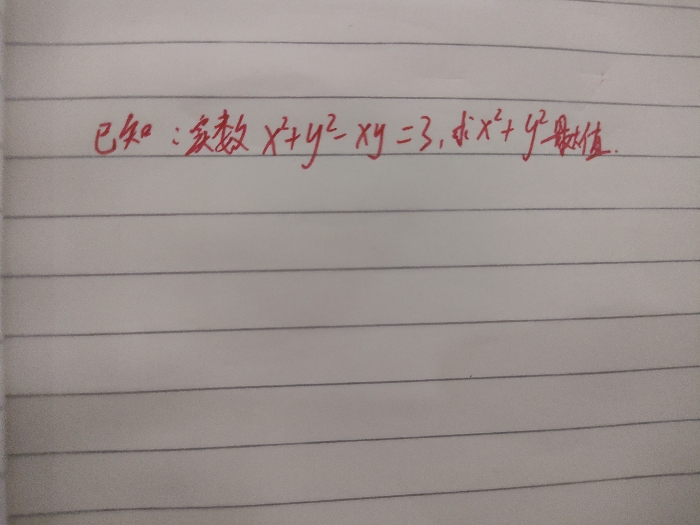 已知：实数 x²+y²-xy=3，求x²+y²最大值.